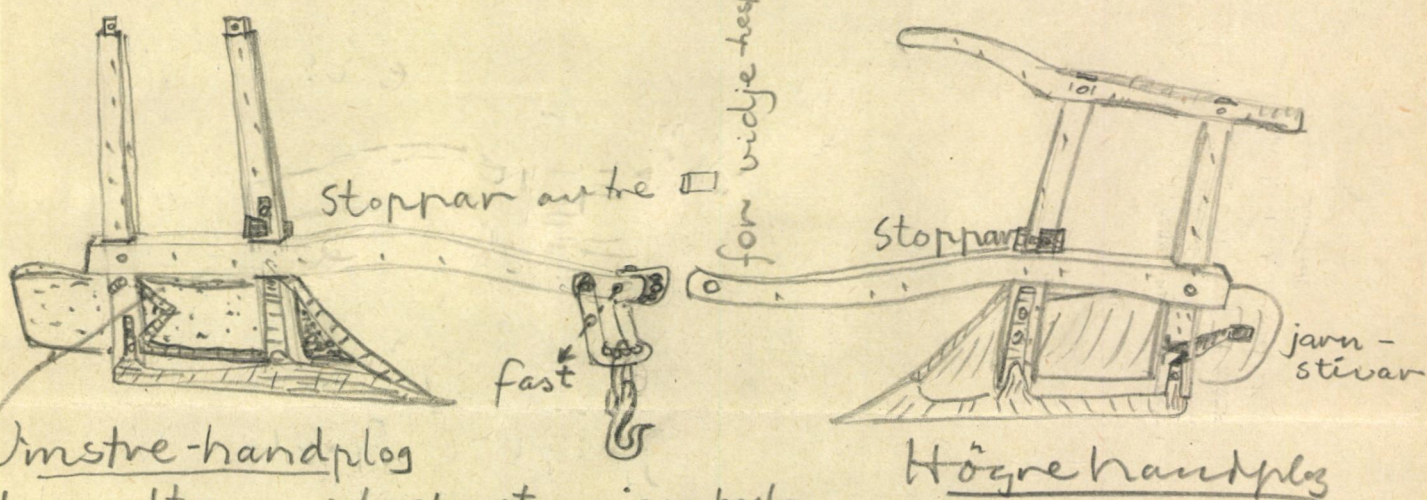 Stoppar av tre
for vidje
Stoppar
fast
jarn-
stivar
Vinstre-handplog
Högre handplog